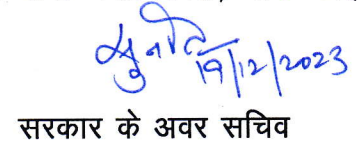 सुनीति
19/12/2023
सरकार के अवर सचिव